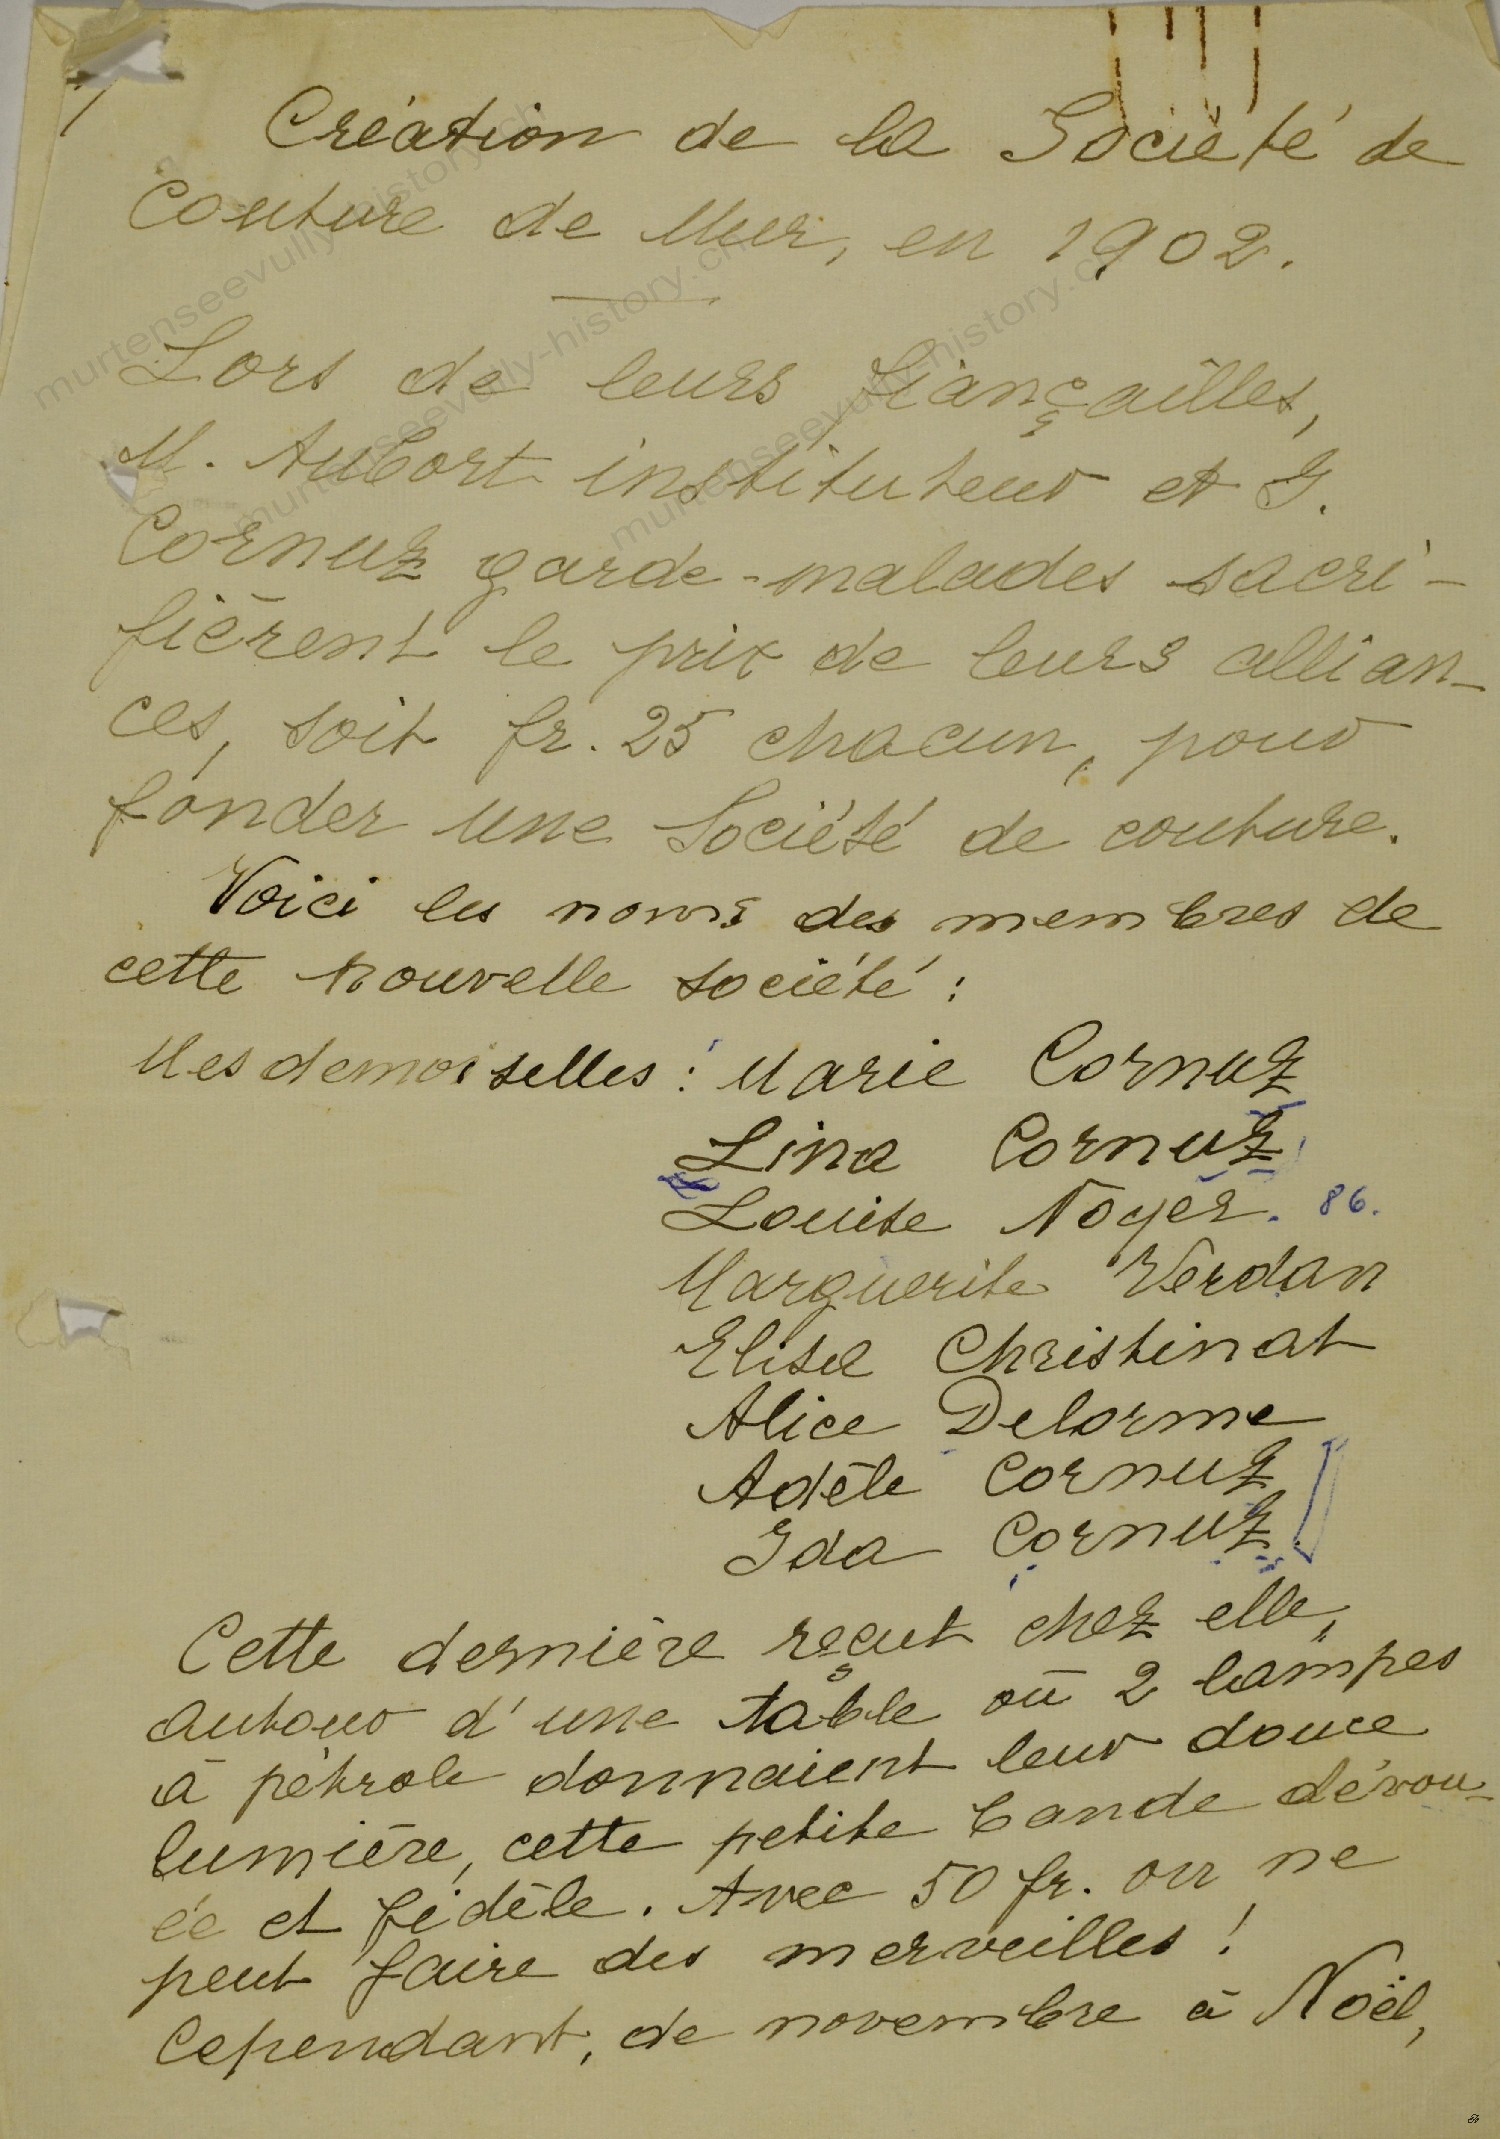 Création de la Société de
Couture de Mur, en 1902.
Lors de leurs fiançailles,
M. Aubort instituteur et I.
Cornuz garde-malades sacri-
fièrent le prix de leurs allian-
ces, soit fr. 25 chacun, pour
fonder une Société de couture.
Voici les noms des membres de
cette nouvelle société :
Mesdemoiselles : Marie Cornuz
Lina Cornuz
Louise Noyer. 86.
Marguerite Verdan
Elisa Christinat
Alice Delorme
Adèle Cornuz
Ida Cornuz
Cette dernière reçut chez elle,
autour d'une table où 2 lampes
à pétrole donnaient leur douce
lumière, cette petite bande dévou-
ée et fidèle. Avec 50 fr. on ne
peut faire des merveilles !
Cependant, de novembre à Noël,
murtenseevully-history.ch
murtenseevully-history.ch
murtenseevully-history.ch